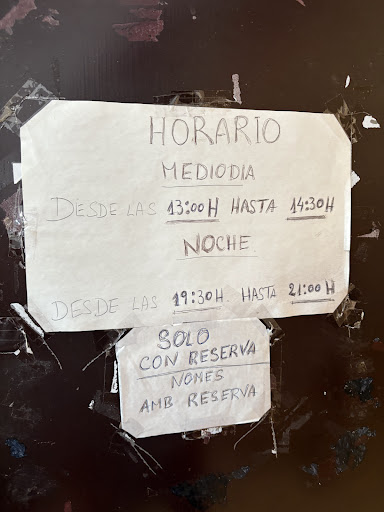 HORARIO
MEDIODIA
DESDE LAS 13:00 H HASTA 14:30 H
NOCHE
DESDE LAS 19:30 H. HASTA 21:00 H
SOLO
CON RESERVA
NOMES
AMB RESERVA